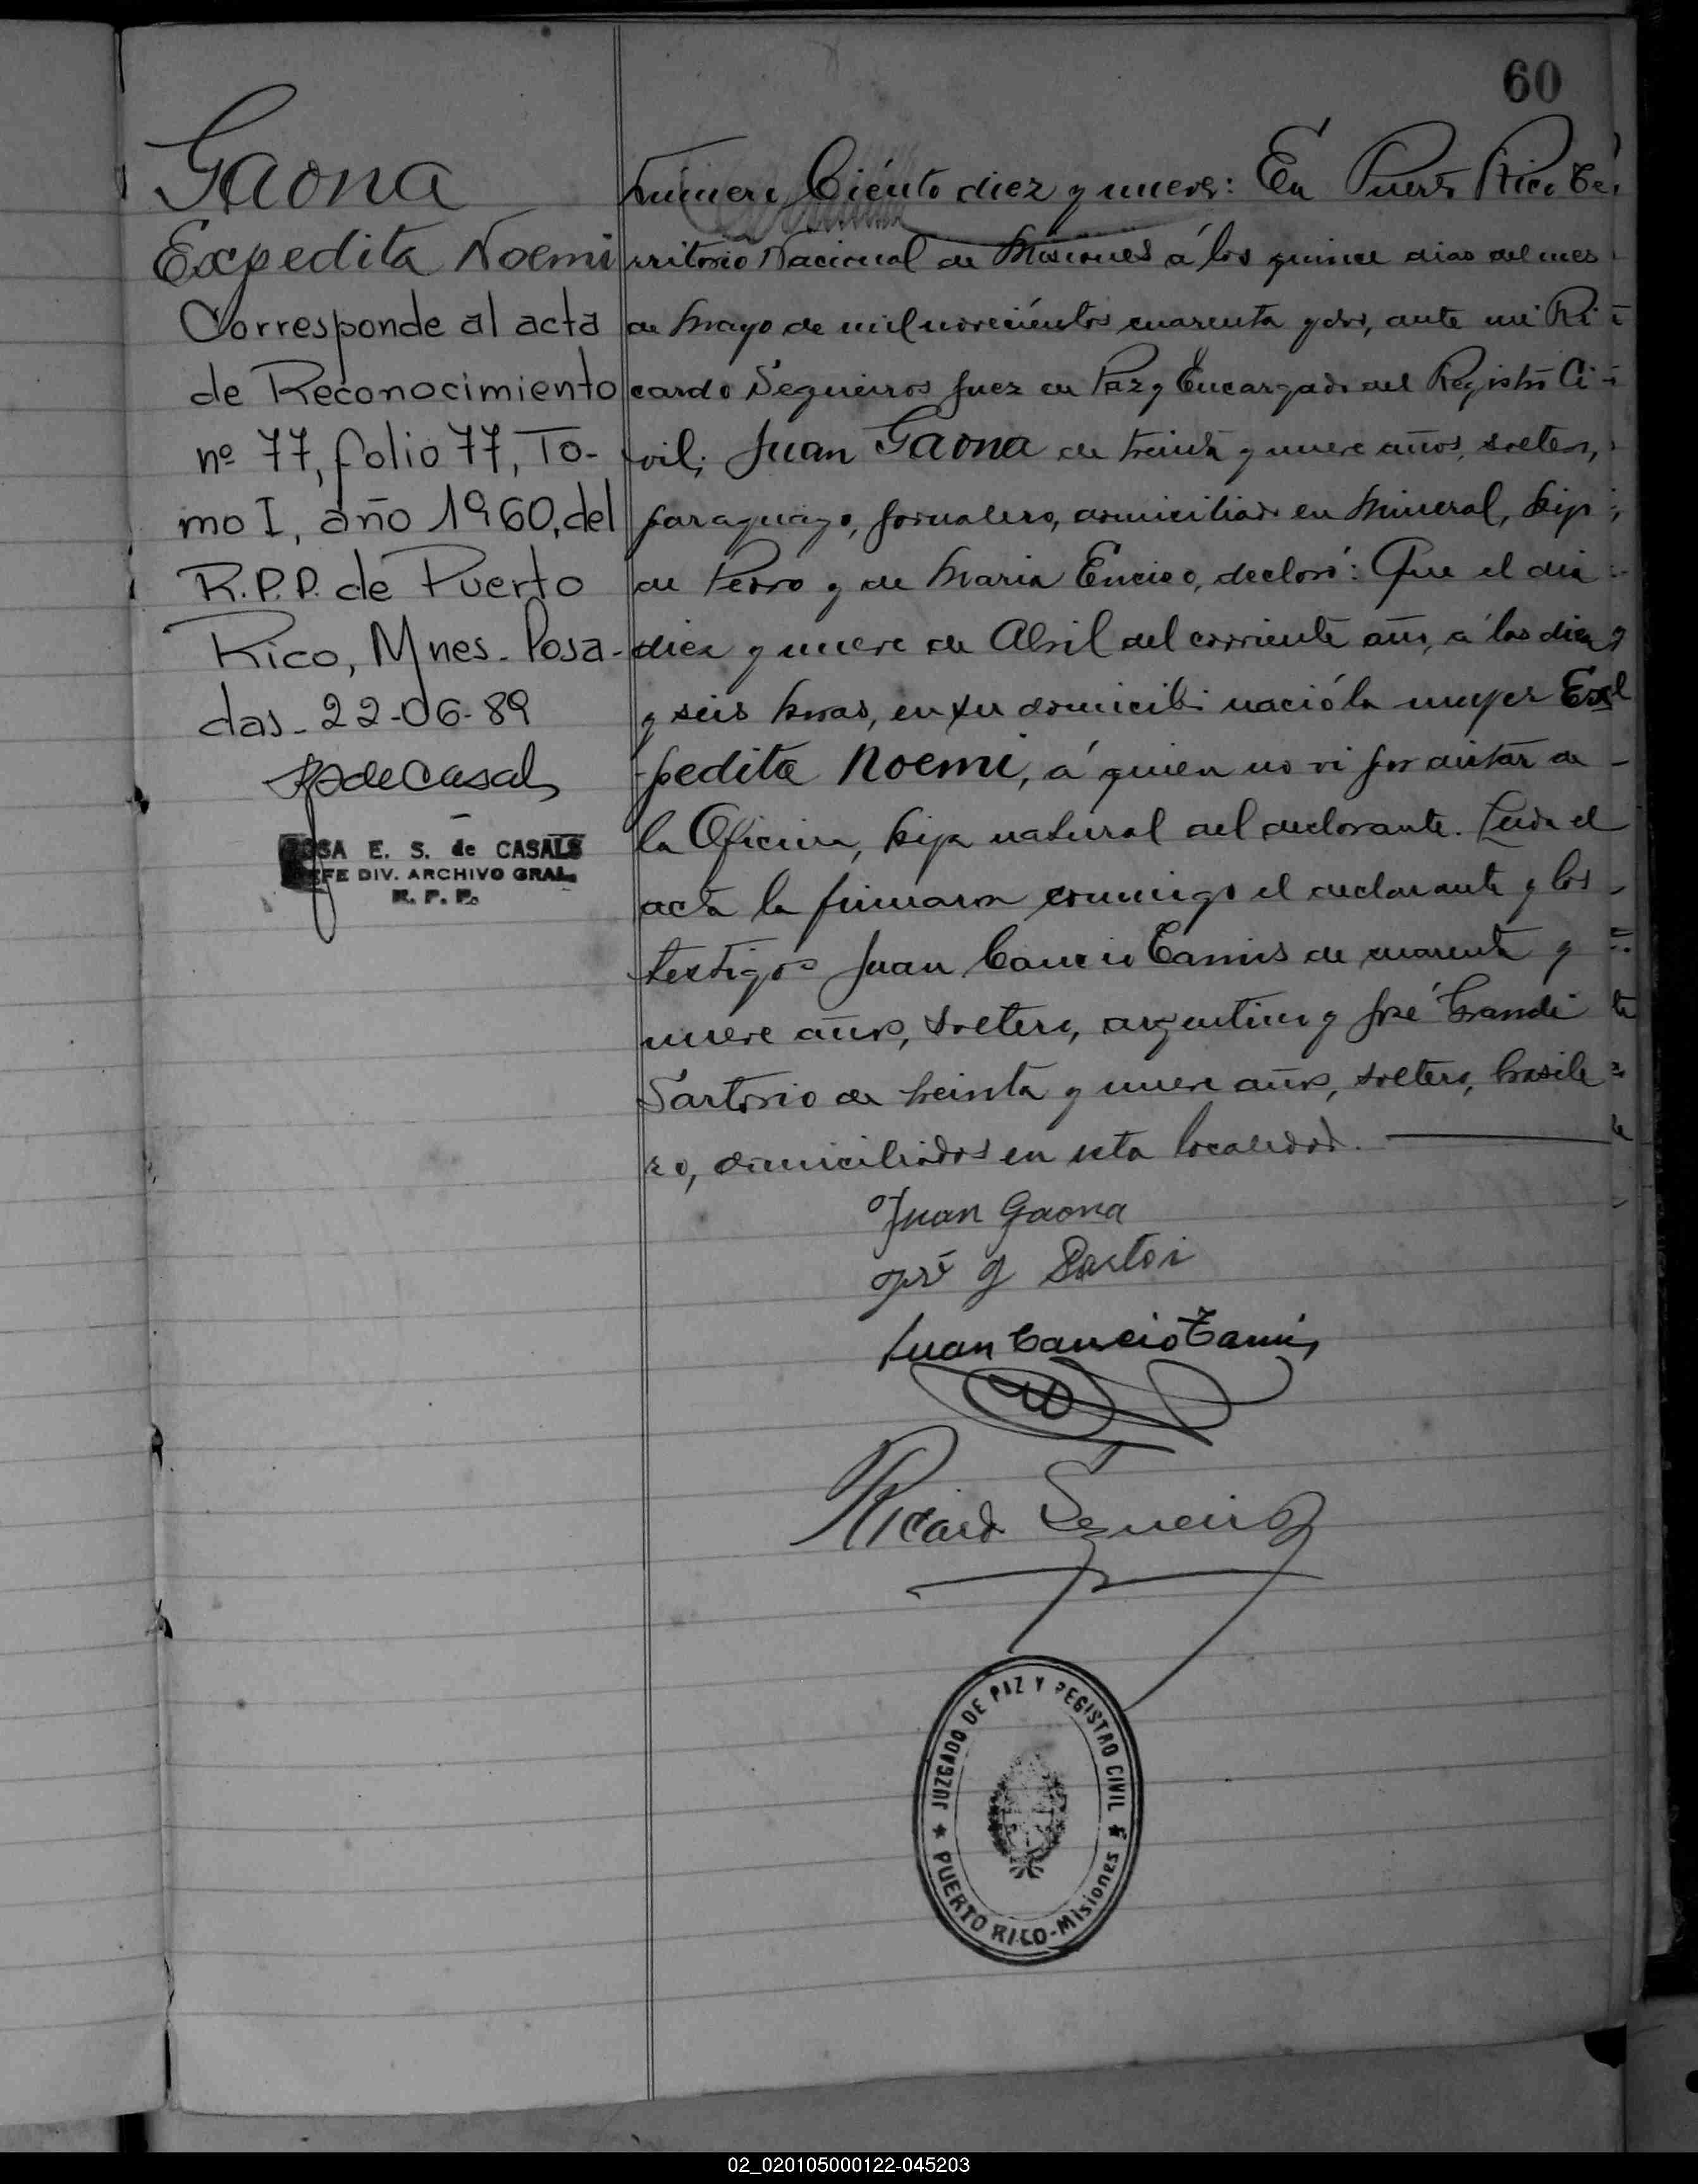 60
Gaona
Expedita Noemi
Corresponde al acta
de Reconocimiento
nº 77, folio 77, To-
mo I, año 1960, del
R.P.P. de Puerto
Rico, Mnes. Posa-
das. 22-06-89
R de Casals
ROSA E. S. de CASALS
JEFE DIV. ARCHIVO GRAL.
R. P. P.
Número Ciento diez y nueve: En Puerto Rico Te-
rritorio Nacional de Misiones á los quince dias del mes
de Mayo de mil novecientos cuarenta y dos, ante mi Ri-
cardo Sequeiros Juez de Paz y Encargado del Registro Ci-
vil, Juan Gaona de treinta y nueve años, soltero,
paraguayo, jornalero, domiciliado en Mineral, hijo
de Pedro y de Maria Enciso, declaró: Que el dia
diez y nueve de Abril del corriente año, á las diez
y seis horas, en su domicilio nació la mujer Ex-
pedita Noemi, á quien no vi por distar de
la Oficina, hija natural del declarante. Leida el
acta la firmaron conmigo el declarante y los
testigos Juan Cancio Tamis de cuarenta y
nueve años, soltero, argentino y José Grandi
Sartorio de treinta y nueve años, soltero, brasile
ro, domiciliados en esta localidad.
Juan Gaona
José g Sartori
Juan Cancio Tamis
Ricardo Sequeiros
JUZGADO DE PAZ Y REGISTRO CIVIL
PUERTO RICO-Misiones
02_020105000122-045203